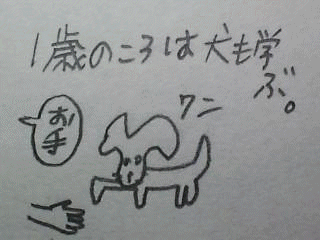 1歳のころは犬も学
ぶ。
お手
ワニ